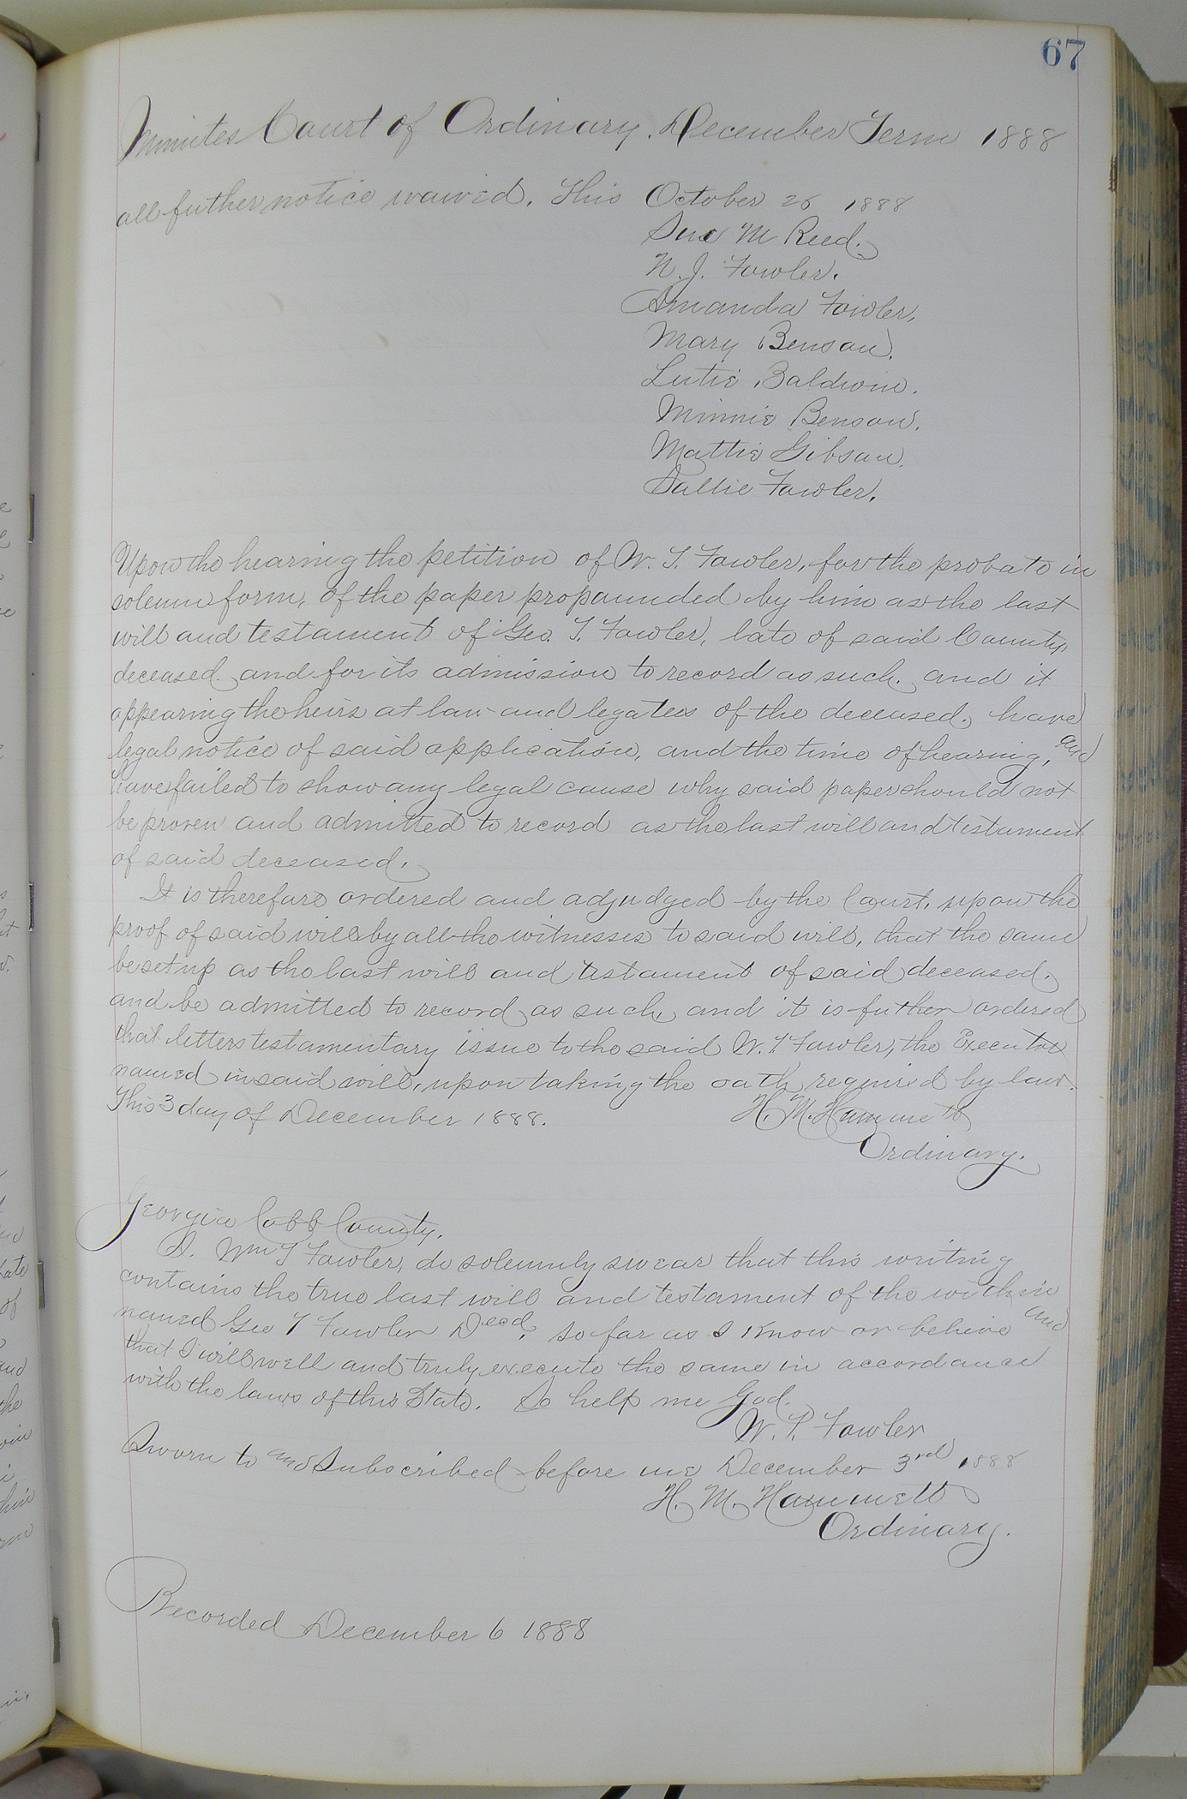 67
Minutes Court of Ordinary. December Term 1888
all futher notice waived. This October 26 1888
Sue M Reed.
N. J. Fowler.
Amanda Fowler.
Mary Benson.
Lutie Baldwin.
Minnie Benson.
Mattie Gibson.
Sallie Fowler.
Upon the hearing the petition of W. T. Fowler, for the probate in
solemn form, of the paper propounded by him as the last
will and testament of Geo. T. Fowler, late of said County,
deceased and for its admission to record as such. and it
appearing the heirs at law and legatees of the deceased, have
legal notice of said application, and the time of hearing, and
have failed to show any legal cause why said paper should not
be proven and admitted to record as the last will and testament
of said deceased.
It is therefore ordered and adjudged by the Court, upon the
proof of said will by all the witnesses to said will, that the same
be set up as the last will and testament of said deceased.
and be admitted to record as such, and it is futher ordered
that letters testamentary issue to the said W. T Fowler, the Executor
named in said will, upon taking the oath required by law.
This 3 day of December 1888. H. M. Hammett
Ordinary.
Georgia Cobb County.
I. Wm T Fowler, do solemnly swear that this writing
contains the true last will and testament of the within
named Geo T Fowler Decd, so far as I know or believe and
that I will well and truly execute the same in accordance
with the laws of this State. So help me God.
W. T. Fowler
Sworn to and Subscribed before me December 3rd 1888
H. M. Hammett
Ordinary.
Recorded December 6 1888